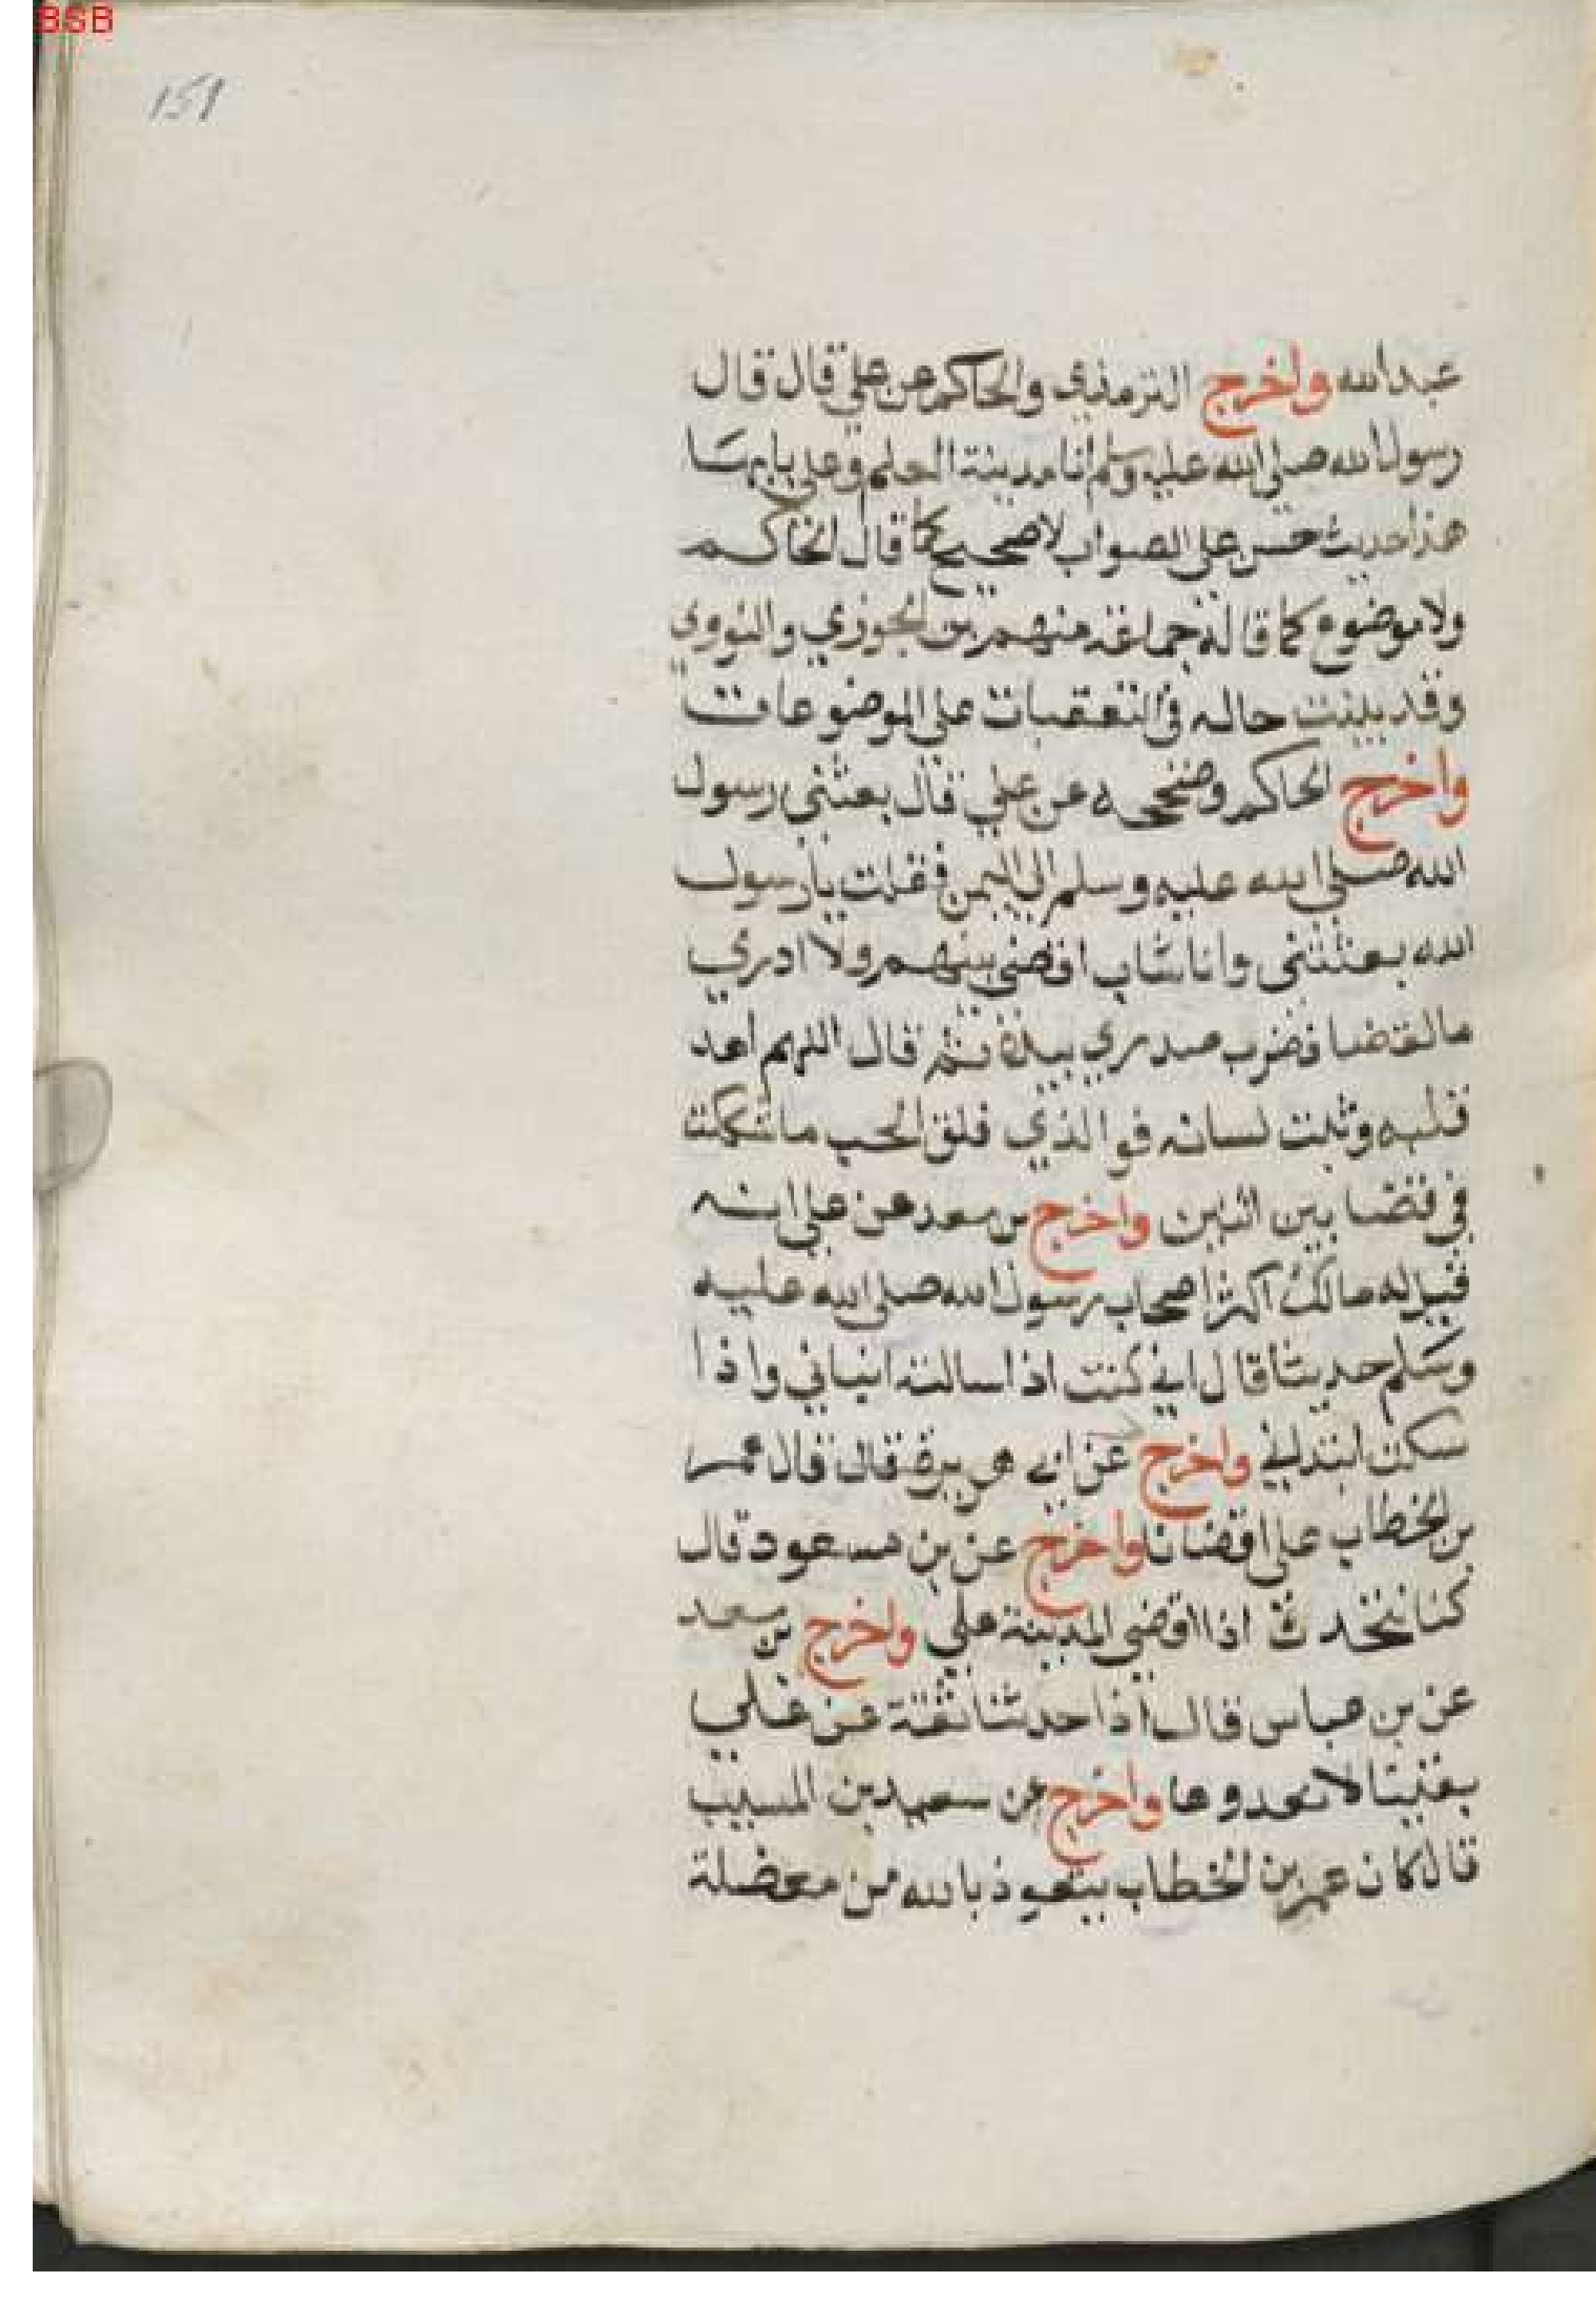 BSB
151
عبد الله واخرج الترمذي والحاكم عن علي قال قال
رسول الله صلى الله عليه وسلم انا مدينة العلم وعلي بابها
هذا حديث حسن على الصواب لا صحيح كما قال الحاكم
ولا موضوع كما قاله جماعة منهم بن الجوزي والنووي
وقد بينت حاله في التعقبات على الموضوعات
واخرج الحاكم وصححه عن علي قال بعثني رسول
الله صلى الله عليه وسلم الى اليمن فقلت يا رسول
الله بعثتني وانا شاب اقضي بينهم ولا ادري
ما القضا فضرب صدري بيده ثم قال اللهم اهد
قلبه وثبت لسانه فوالذي فلق الحب ما شككت
في قضا بين اثنين واخرج بن سعد عن علي انه
قيل له مالك اكثر اصحاب رسول الله صلى الله عليه
وسلم حديثا قال اني كنت اذا سالته انباني واذا
سكت ابتداني واخرج عن ابي هريرة قال قال عمر
بن الخطاب علي اقضانا واخرج عن بن مسعود قال
كنا نتحدث اذا اقضى المدينة علي واخرج بن سعد
عن بن عباس قال اذا حدثنا ثقة عن علي
بفتيا لا نعدوها واخرج عن سعيد بن المسيب
قال كان عمر بن الخطاب يتعوذ بالله من معضلة